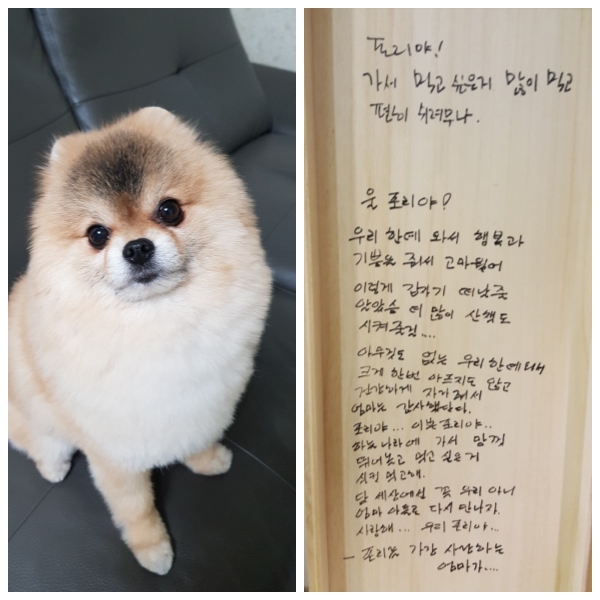 포리야!
가서 먹고 싶은거 많이 먹고
편히 쉬려무나.
울 포리야?
우리 한테 와서 행복과
기쁨을 줘서 고마웠어
이렇게 갑자기 떠날줄
알았음 더 많이 산책도
시켜줄걸....
아무것도 없는 우리 한테 와
크게 한번 아프지도 않고
건강하게 자라줘서
엄마는 감사했단다.
포리야... 이쁜포리야..
하늘나라에 가서 맘껏
뛰어놀고 먹고 싶은거
실컷 먹고
담 세상에선 꼭 우리 아니
엄마 아들로 다시 만나자.
사랑해... 우리 포리야...
- 포리를 가장 사랑하는
엄마가....